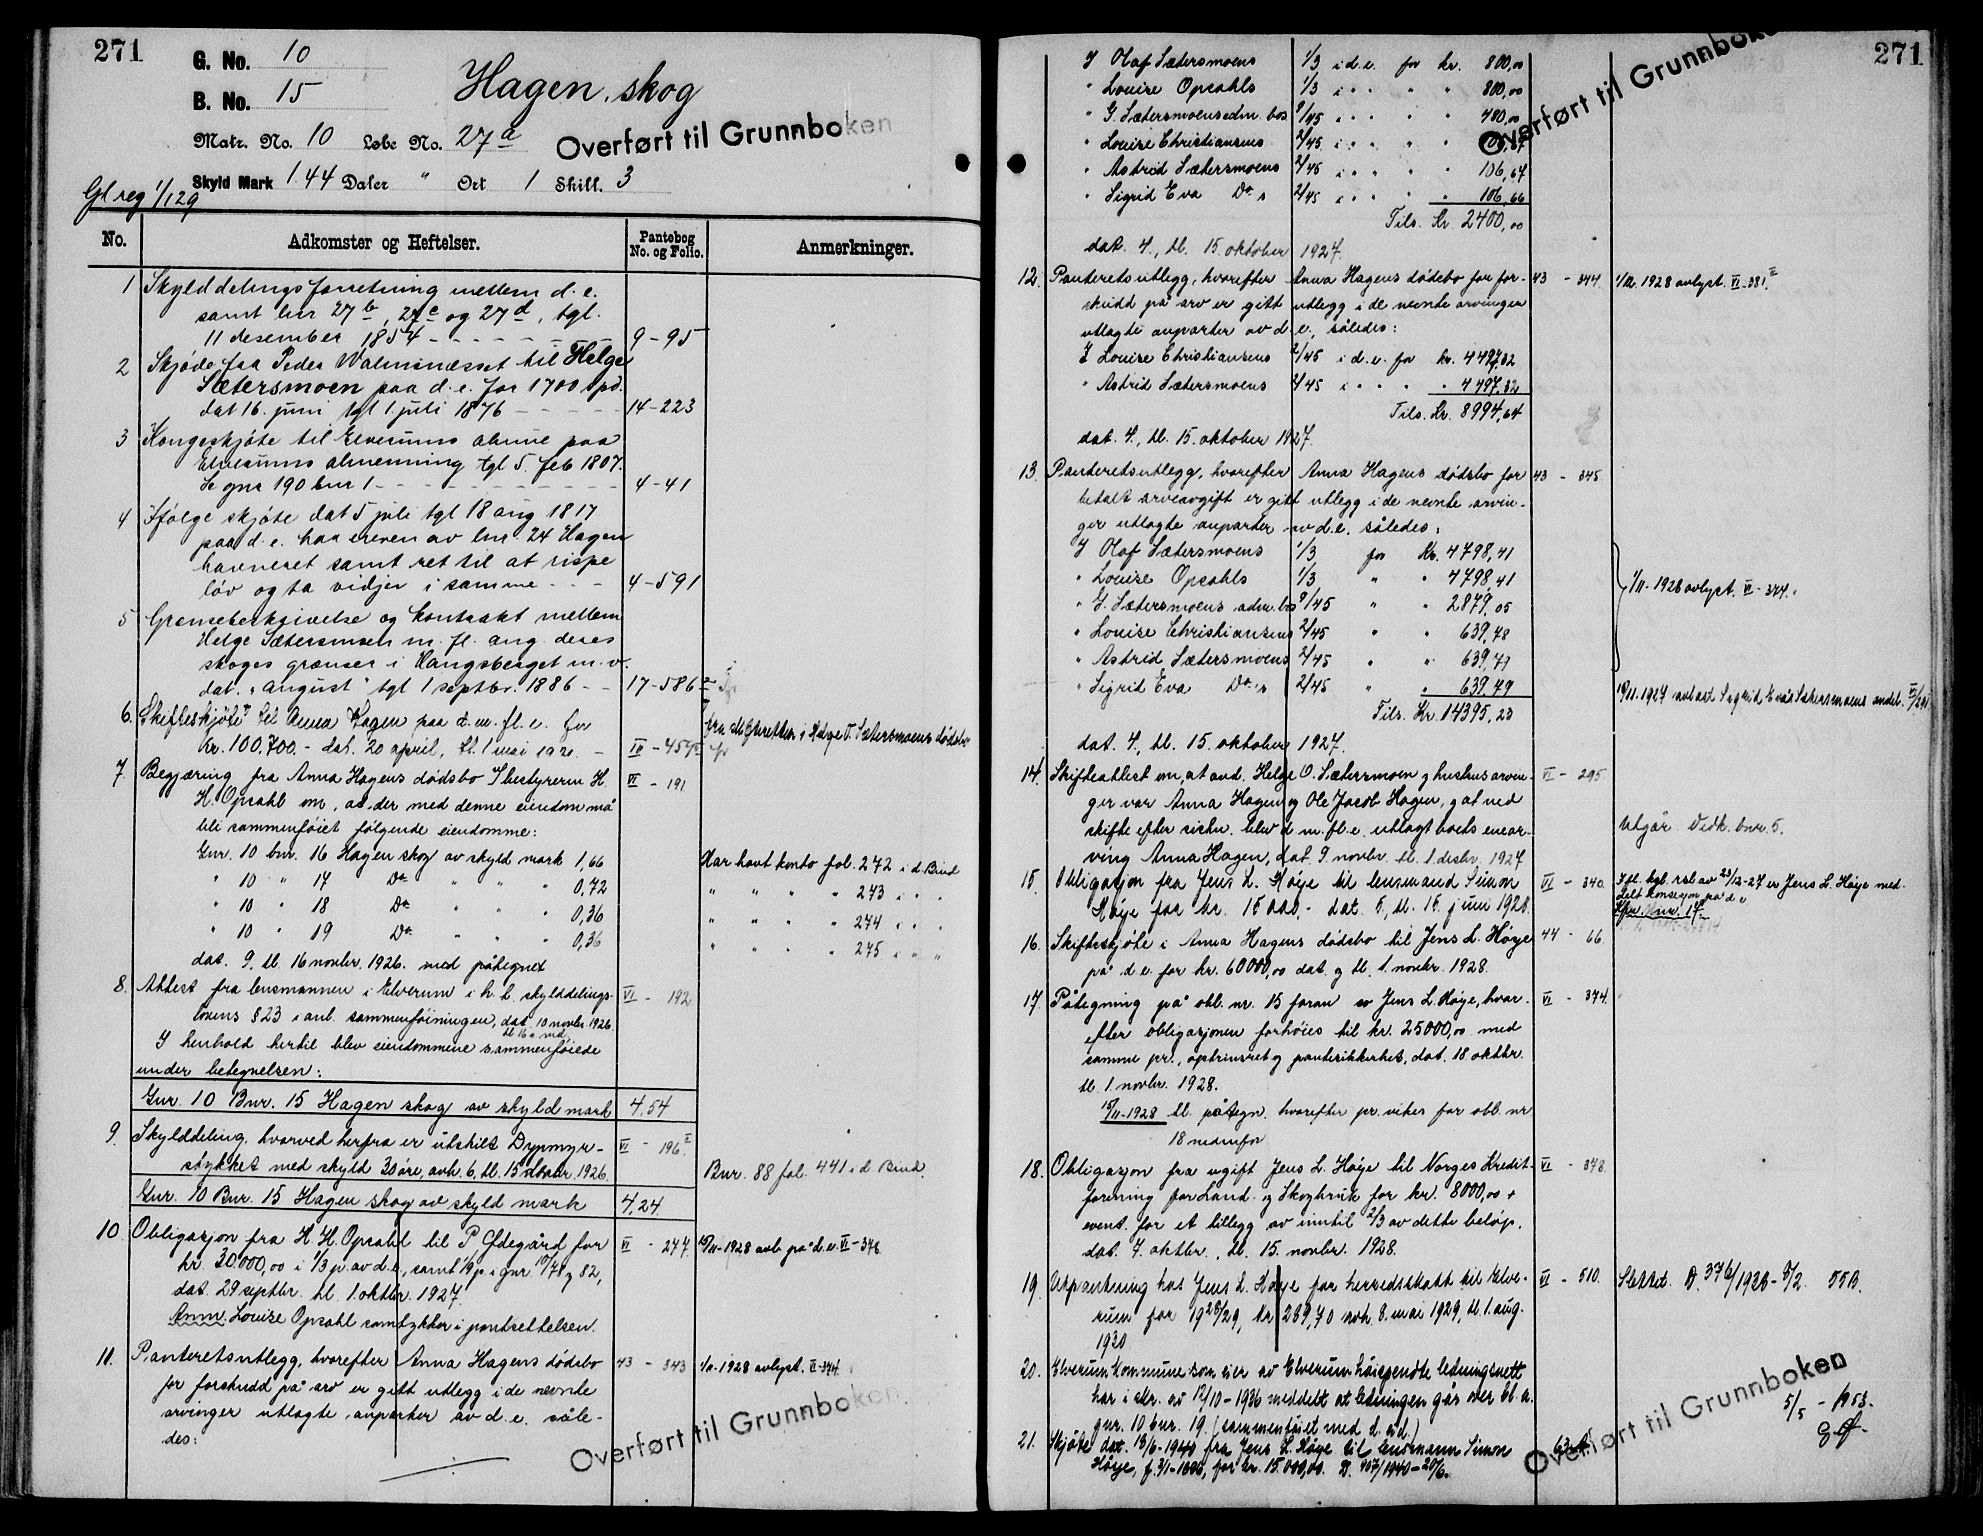 271
G. No. 10
B. No. 15
Hagen skog
Matr. No. 10 Løbe No. 27a
Overført til Grunnboken
Skyld Mark 1.44 Daler " Ort 1 Skill. 3
Gl reg 1/129
No. Adkomster og Heftelser. Pantebog No. og Folio. Anmerkninger.
1 Skylddelingsforretning mellem d. e.
samt lnr 27b, 27c og 27d, tgl.
11 desember 1854 - - - - - - 9-95
2 Skjøde fra Peder Walmsnæsset til Helge
Sætersmoen paa d. e. for 1700 spd.
dat 16. juni tgl 1. juli 1876 - - - - - 14-223
3 Kongeskjøte til Elverums almue paa
Elverums almenning tgl 5. feb 1807.
Se gnr 190 bnr 1 - - - - - - - 4-41
4 Ifølge skjøte dat 5 juli tgl 18 aug 1817
paa d. e. har eieren av lnr. 24 Hagen
havneret samt ret til at rispe
løv og ta vidjer i samme - - - 4-591
5 Grænsebeskrivelse og kontrakt mellem
Helge Sætersmoen m. fl. ang. deres
skoges grænser i Hangsberget m. v.
dat. "august" tgl 1 septbr. 1886 - - 17-586
6. Skifteskjøte til Anna Hagen paa d. m. fl. e. for
kr. 100.700.- dat. 20 april, tl. 1 mai
fra skifteretten i Helge O. Sætersmoens dødsbo
7. Begjæring fra Anna Hagens dødsbo v/bestyreren H. VI - 191
H. Opsahl om, at der med denne eiendom må
bli sammenføiet følgende eiendomme:
Gnr. 10 bnr. 16 Hagen skog av skyld mark 1,66 Har havt konto fol. 272 i d. Bind
" 10 " 17 Do " " " 0,72 " " " " 273 i " "
" 10 " 18 Do " " " 0,36 " " " " 274 i " "
" 10 " 19 Do " " " 0,36 " " " " 275 i " "
dat. 9, tl. 16 novbr. 1926. med påtegnet
8. Attest fra lensmannen i Elverum i h. t. skylddelings- VI - 192
lovens §23 i anl. sammenføiningen, dat. 10 novbr. 1926.
tl 16 s. md.
I henhold hertil blev eiendommene sammenføiede
under betegnelsen:
Gnr. 10 Bnr. 15 Hagen skog av skyld mark 4,54
9. Skylddeling, hvorved herfra er utskilt Dypmyr- VI - 196 II
stykket med skyld 30 øre, avh. 6, tl. 15 desbr. 1926. Bnr. 88 fol. 441 i d. Bind.
Gnr. 10 Bnr. 15 Hagen skog av skyld mark 4,24
10. Obligasjon fra H. H. Opsahl til P. Ødegård for VI - 277. 15/11-1928 avl. på d. e. VI-346
kr. 30.000,00 i 1/3 p. av d. e., samt 1/9 p. i gnr. 10/78 og 82,
dat. 29 septbr. tl. 1. oktbr. 1927.
Anm. Louise Opsahl samtykker i pantsettelsen.
11. Panteretsutlegg, hvorefter Anna Hagens dødsbo 43 - 343 1/11-1928 avlyst. VI-344.
for forskudd på arv er gitt utlegg i de nevnte
arvinger utlagte anparter av d. e. såle-
des:
Overført til Grunnboken
271
Overført til Grunnboken
I Olaf Sætersmoens 1/3 i d. e. for kr. 800,00
" Louise Opsahls 1/3 i " " " " 800,00
" G. Sætersmoens adm. bos 9/45 i " " " " 480,00
" Louise Christiansens 2/45 i " " "
" Astrid Sætersmoens 2/45 i " " " 106,67
" Sigrid Eva Do s 2/45 i " " " 106,66
Tils. Kr. 2400,00
dat. 4., tl. 15. oktober 1927.
12. Panteretsutlegg, hvorefter Anna Hagens dødsbo for for- 43 - 344. 1/11. 1928 avlyst. VI-381 II
skudd på arv er gitt utlegg i de nevnte arvinger
utlagte anparter av d. e. således:
I Louise Christiansens 2/45 i d. e. for kr. 4497,32
" Astrid Sætersmoens 2/45 i " " " " 4497,32
Tils. Kr. 8994,64
dat. 4., tl. 15. oktober 1927.
13. Panteretsutlegg, hvorefter Anna Hagens dødsbo for 43 - 345
betalt arveavgift er gitt utlegg i de nevnte arvin-
ger utlagte anparter av d. e. således:
I Olaf Sætersmoens 1/3 for Kr. 4798,41
" Louise Opsahls 1/3 " " 4798,41
" G. Sætersmoens adm. bos 9/45 " " 2879,05
1/11-1928 avlyst. VI-344.
" Louise Christiansens 2/45 " " 639,78
" Astrid Sætersmoens 2/45 " " 639,79
" Sigrid Eva Do s 2/45 " " 639,79
Tils. Kr. 14395,23
dat. 4., tl. 15. oktober 1927.
14. Skifteattest om, at avd. Helge O. Sætersmoen og hustrus arvin- VI - 295
ger var Anna Hagen og Ole Jacob Hagen, og at ved
skifte efter sistn. blev d. m. fl. e. utlagt boets enear- Utgår. Vedk. bnr. 5.
ving Anna Hagen, dat. 9. novbr. tl. 1. desbr. 1927
15. Obligasjon fra Jens L. Høye til lensmand Simon VI - 340. Ifl. kgl. res. av 23/12-27 er Jens L. Høye med-
Høye for kr. 15000,- dat. 5, tl. 15. juni 1928. delt konsesjon på d. e.
16. Skifteskjøte i Anna Hagens dødsbo til Jens L. Høye 44 - 66.
på d. e. for kr. 60000,00 dat. og tl. 1. novbr. 1928.
17. Påtegning på obl. nr. 15 foran av Jens L. Høye, hvor- VI - 374.
efter obligasjonen forhøies til kr. 25000,00 med
samme pr., optrinsret og pantesikkerhet, dat. 18 oktbr.
tl. 1. novbr. 1928.
15/11-1928 tl. påtegn. hvorefter pr. viker for obl. nr
18 nedenfor
18. Obligasjon fra ugift Jens L. Høye til Norges Kredit- VI - 378.
forening for Land- og Skogbruk for kr. 8000,00 +
event. for et tillegg av inntil 2/3 av dette beløp.
dat. 7. oktbr., tl. 15. novbr. 1928.
19. Utpantning hos Jens L. Høye for herredsskatt til Elve- VI - 510. Slettet. D. 376/1938-3/2. 55B.
rum for 1928/29, kr 289,70 avh. 8. mai 1929, tl. 1. aug.
1930
20. Elverum kommune som eier av Elverum høispendte ledningsnett
har i skr. av 12/10-1936 meddelt at ledningen går over bl. a.
gnr. 10 bnr. 19. (sammenføiet med d. eid.)
21. Skjøte dat. 13/6-1940 fra Jens L. Høye til lensmann Simon
Høye, f. 3/1-1886, for kr. 15.000,00. D. 907/1940-20/6.
Overført til Grunnboken
5/5 - 1953.